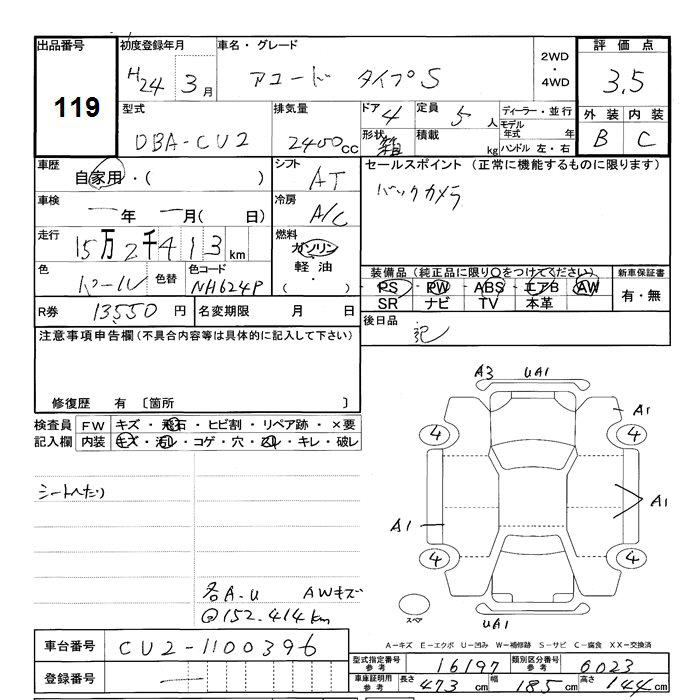 出品番号 初度登録年月 車名・グレード 2WD・4WD 評価点
119 H24 3月 アコード タイプS 3.5
型式 排気量 ドア 4 定員 5人 ディーラー・並行 外装 内装
DBA-CU2 2400cc 形状 箱 積載 kg モデル年式 年 B C
ハンドル 左・右
車歴 自家用・( ) シフト AT セールスポイント (正常に機能するものに限ります)
バックカメラ
車検 一年 一月( 日) 冷房 A/C
走行 15万2千413km 燃料 ガソリン
軽油・( )
色 パール 色替 色コード NH624P
装備品(純正品に限り○をつけてください) 新車保証書
PS・PW・ABS・エアB・AW 有・無
SR ナビ TV 本革
R券 13,550円 名変期限 月 日 後日品 記
注意事項申告欄(不具合内容等は具体的に記入して下さい)
修復歴 有 〔箇所 〕
検査員記入欄 FW キズ・飛石・ヒビ割・リペア跡・×要
内装 キズ・汚れ・コゲ・穴・スレ・キレ・破レ
シートへたり
各A.U AWキズ
@152.414km
A3 UA1
A1
4 4
A1
A1
4 4
スペア
UA1
A-キズ E-エクボ U-凹み W-補修跡 S-サビ C-腐食 XX-交換済
車台番号 CU2-1100396
登録番号 一
型式指定番号 参考 16197 類別区分番号 参考 6023
車庫証明用 参考 長さ 473cm 幅 185cm 高さ 144cm